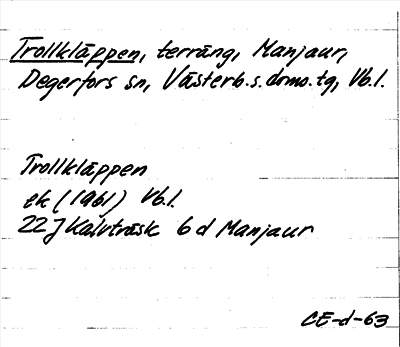 Trollkläppen, terräng, Manjaur,
Degerfors sn, Västerb.s.doms.tg, Vb.l.
Trollkläppen
ek (1961) Vb.l.
22J Kalvträsk 6d Manjaur
CE-d-63